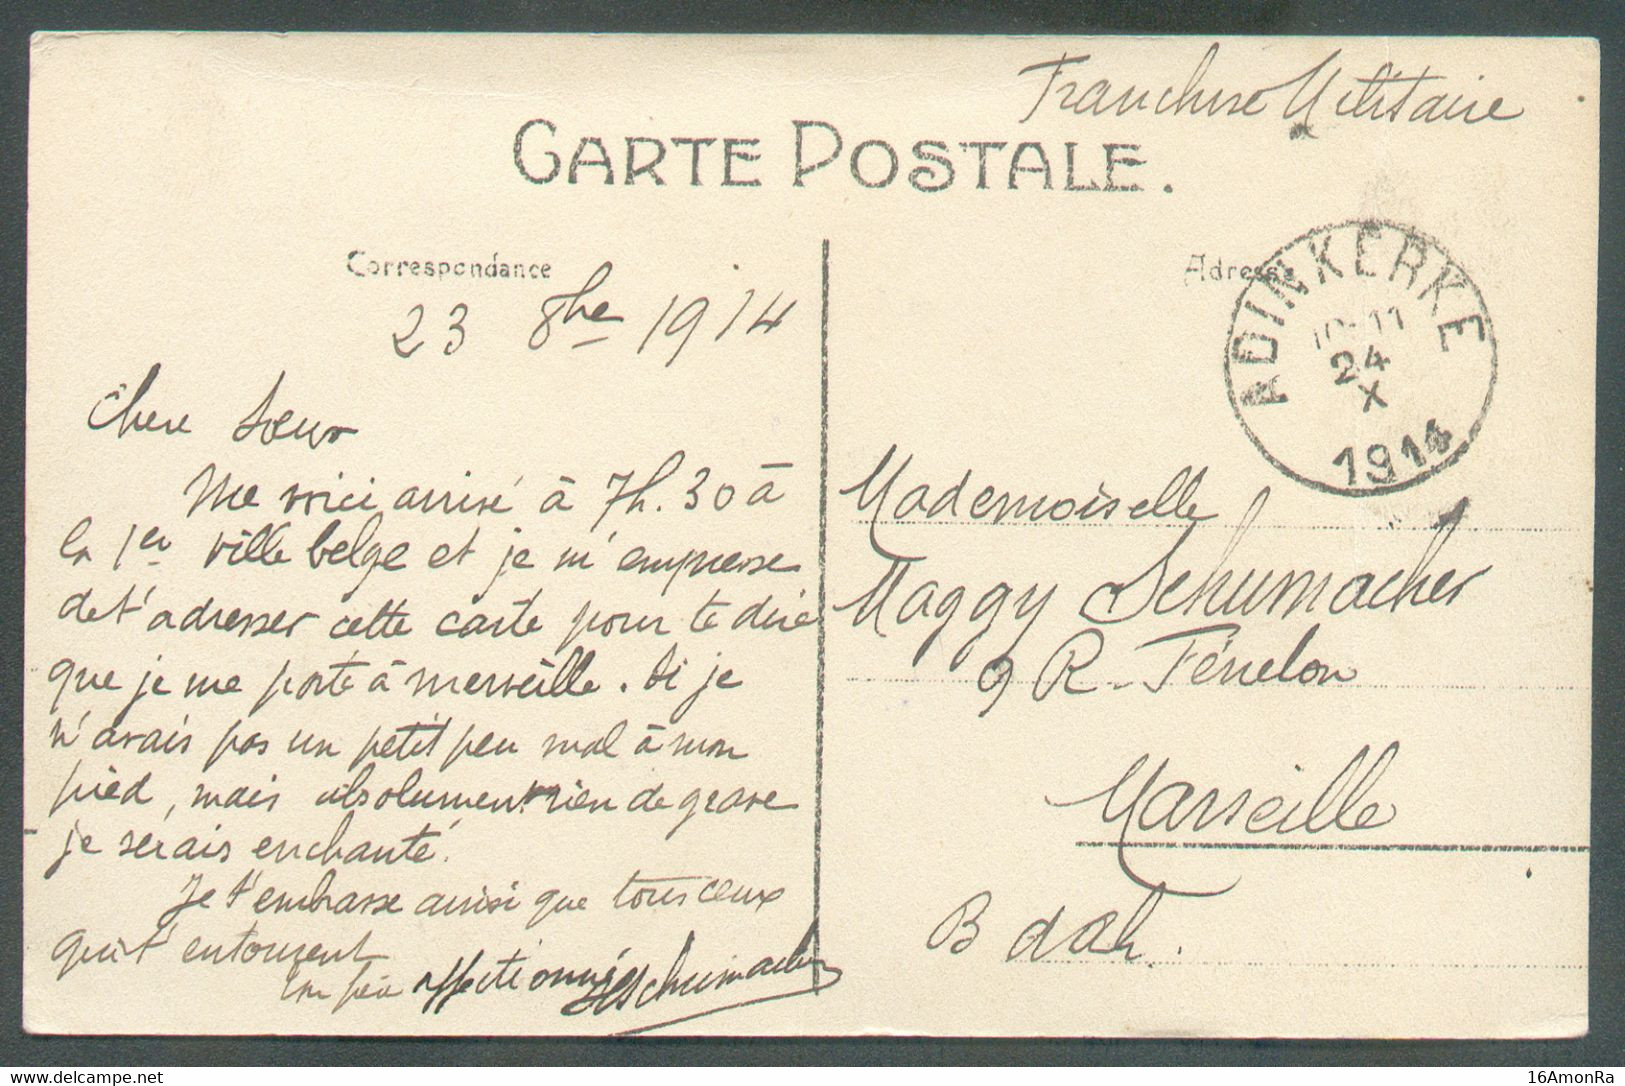 Franchise Militaire
CARTE POSTALE.
Correspondance
Adresse
ADINKERKE
10-11
24
X
1914
23 8bre 1914
Chere Soeur
Me voici arrivé à 7h.30 à
la 1er ville belge et je m'empresse
de t'adresser cette carte pour te dire
que je me porte à merveille. Si je
n'avais pas un petit peu mal à mon
pied, mais absolument rien de grave
je serais enchanté.
Je t'embrasse ainsi que tous ceux
qui t'entourent
ton frère affectionné
Schumacher
Mademoiselle
Maggy Schumacher
9 R. Fénelon
Marseille
B d Rh.
www.delcampe.net
16AmonRa